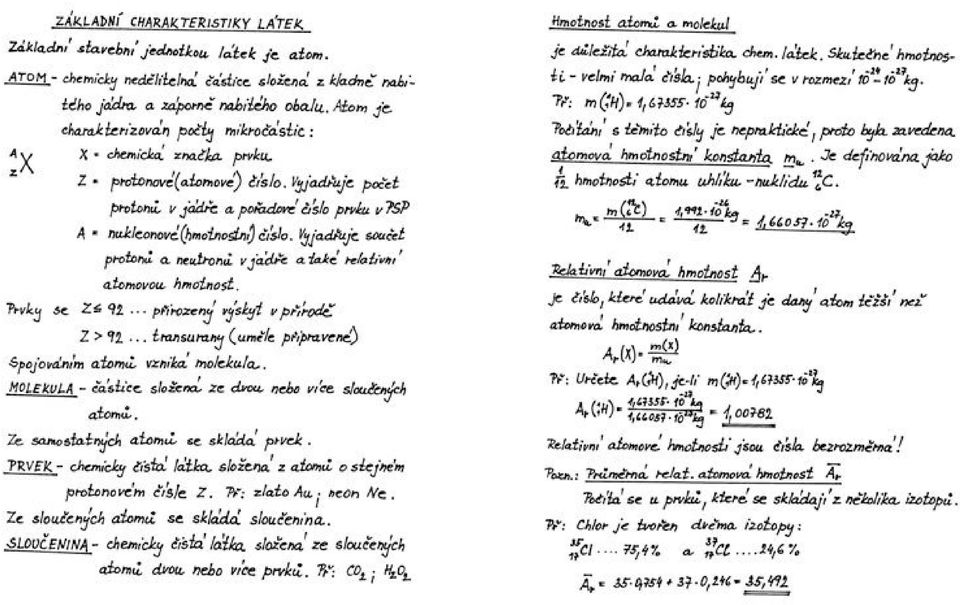 ZÁKLADNÍ CHARAKTERISTIKY LÁTEK
Základní stavební jednotkou látek je atom.
ATOM - chemicky nedělitelná částice složená z kladně nabi-
tého jádra a záporně nabitého obalu. Atom je
charakterizován počty mikročástic:
ᴬ_Z X X = chemická značka prvku
Z = protonové (atomové) číslo. Vyjadřuje počet
protonů v jádře a pořadové číslo prvku v PSP
A = nukleonové (hmotnostní) číslo. Vyjadřuje součet
protonů a neutronů v jádře a také relativní
atomovou hmotnost.
Prvky se Z ≤ 92 ... přirozený výskyt v přírodě
Z > 92 ... transurany (uměle připravené)
Spojováním atomů vzniká molekula.
MOLEKULA - částice složená ze dvou nebo více sloučených
atomů.
Ze samostatných atomů se skládá prvek.
PRVEK - chemicky čistá látka složená z atomů o stejném
protonovém čísle Z. Př: zlato Au; neon Ne.
Ze sloučených atomů se skládá sloučenina.
SLOUČENINA - chemicky čistá látka složená ze sloučených
atomů dvou nebo více prvků. Př: CO₂; H₂O₂
Hmotnost atomů a molekul
je důležitá charakteristika chem. látek. Skutečné hmotnos-
ti - velmi malá čísla; pohybují se v rozmezí 10⁻²⁴-10⁻²⁷kg.
Př: m(¹₁H) = 1,67355 · 10⁻²⁷kg
Počítání s těmito čísly je nepraktické, proto byla zavedena
atomová hmotnostní konstanta mᵤ. Je definována jako
1/12 hmotnosti atomu uhlíku - nuklidu ¹²₆C.
mᵤ = m(¹²₆C)/12 = 1,992·10⁻²⁶kg/12 = 1,66057·10⁻²⁷kg
Relativní atomová hmotnost Aᵣ
je číslo, které udává kolikrát je daný atom těžší než
atomová hmotnostní konstanta.
Aᵣ(X) = m(X)/mᵤ
Př: Určete Aᵣ(¹₁H), je-li m(¹₁H) = 1,67355·10⁻²⁷kg
Aᵣ(¹₁H) = 1,67355·10⁻²⁷kg/1,66057·10⁻²⁷kg = 1,00782
Relativní atomové hmotnosti jsou čísla bezrozměrná!
Pozn.: Průměrná relat. atomová hmotnost A̅ᵣ
Počítá se u prvků, které se skládají z několika izotopů.
Př: Chlor je tvořen dvěma izotopy:
³⁵₁₇Cl .... 75,4% a ³⁷₁₇Cl .... 24,6%
A̅ᵣ = 35·0,754 + 37·0,246 = 35,492